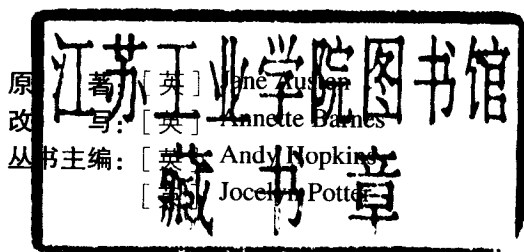 江苏工业学院图书馆
原 著: [英] Jane Austen
改 写: [英] Annette Barnes
丛书主编: [英] Andy Hopkins
[英] Jocelyn Potter
藏书章